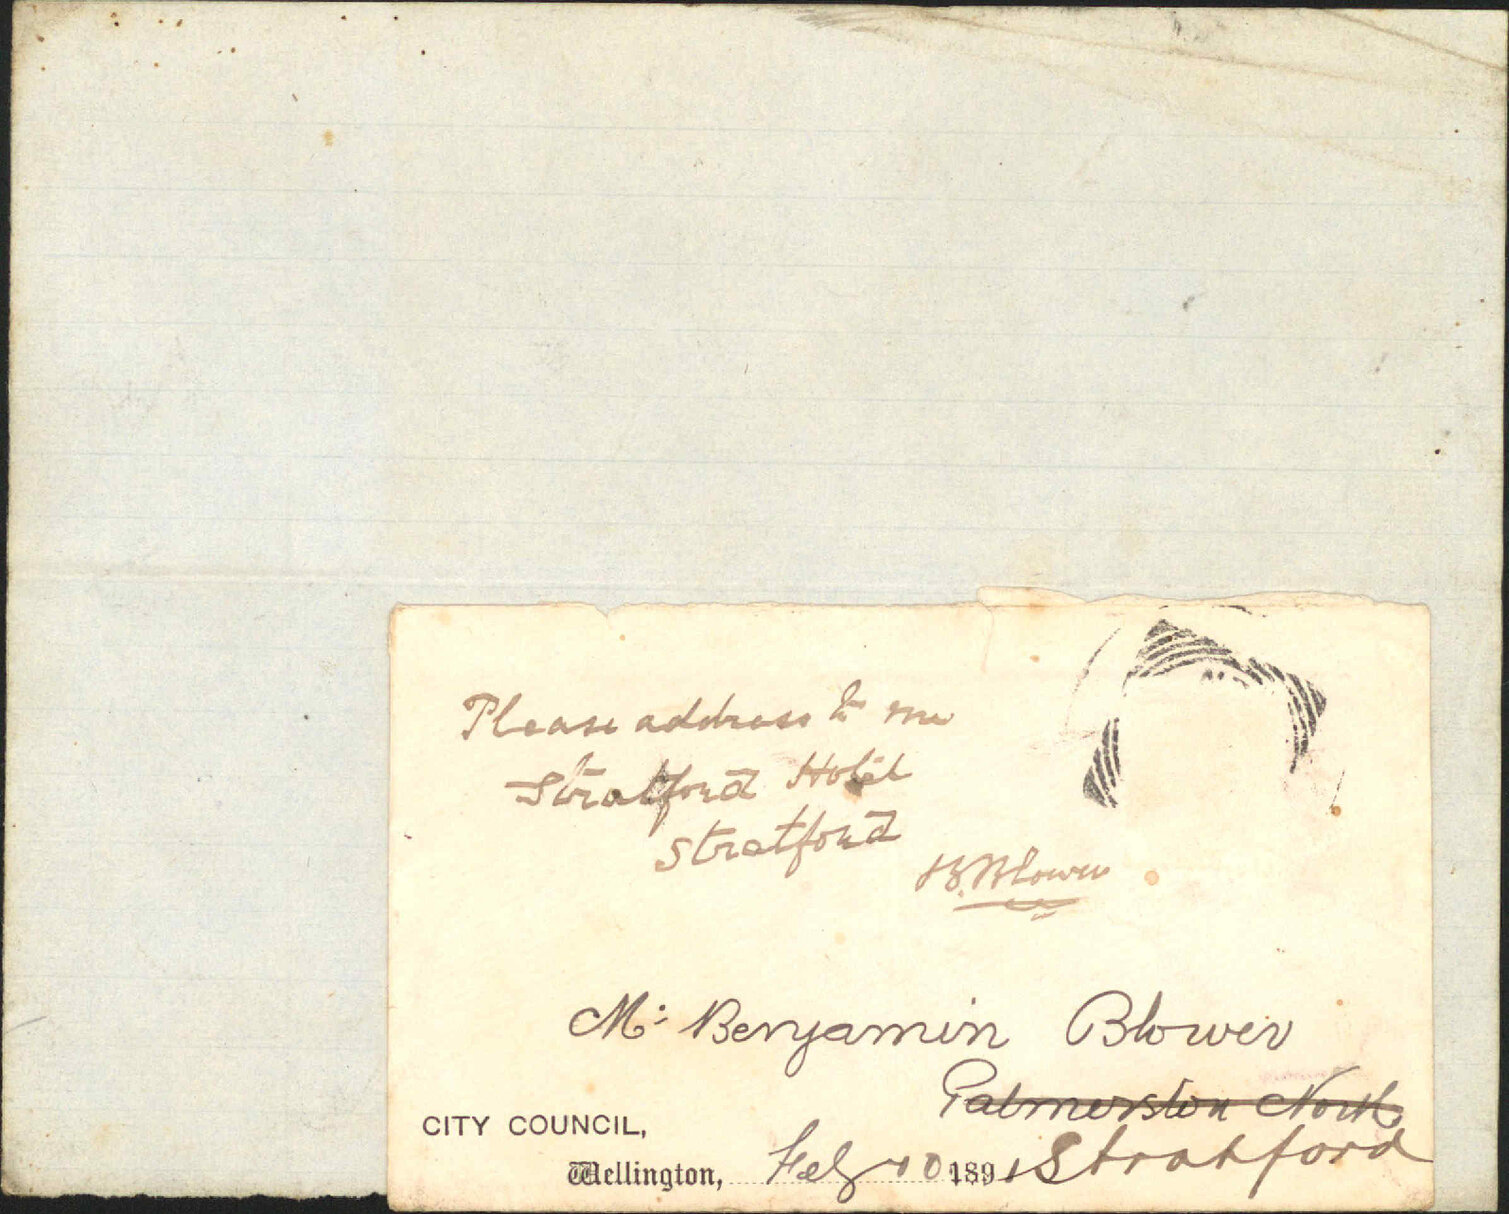 Please address to me
Stratford Hotel
Stratford
B. Blower
Mr. Benjamin Blower
Palmerston North
CITY COUNCIL,
Stratford
Wellington, Feby 10 1891